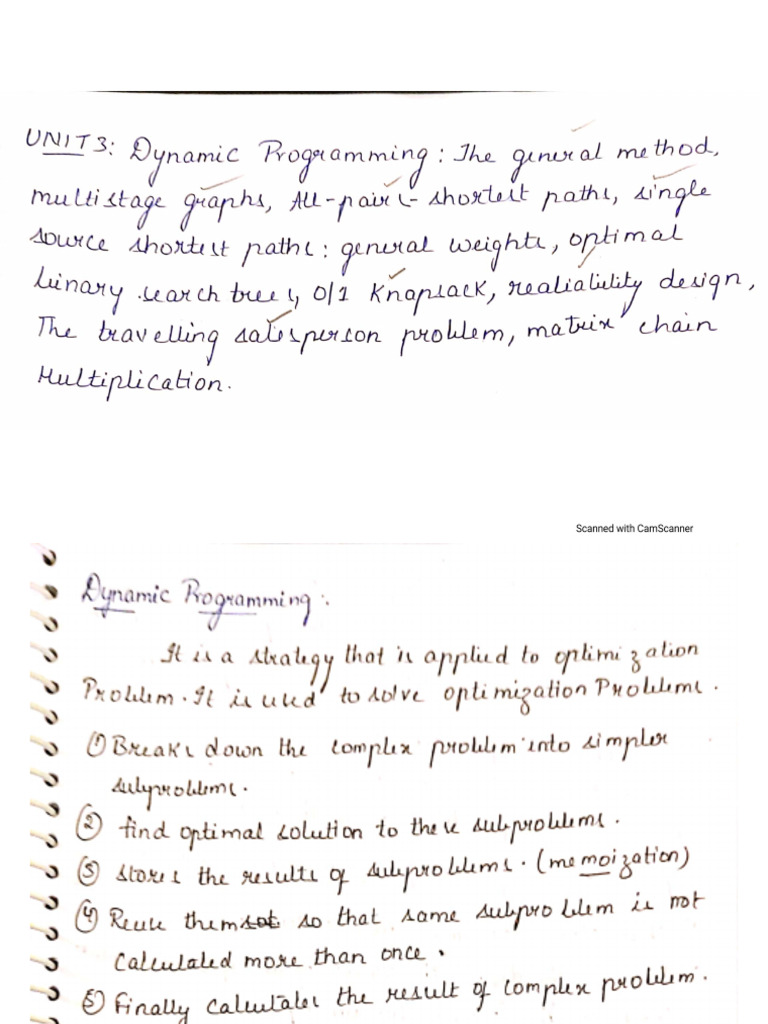 UNIT 3: Dynamic Programming: The general method,
multistage graphs, All-pairs-shortest paths, single
source shortest paths: general weights, optimal
binary search trees, 0/1 Knapsack, realiability design,
The travelling salesperson problem, matrix chain
Multiplication.
Scanned with CamScanner
Dynamic Programming:
It is a strategy that is applied to optimization
Problem. It is used to solve optimization Problems.
① Breaks down the complex problem into simpler
subproblems.
② find optimal solution to these subproblems.
③ stores the results of subproblems. (memoization)
④ Reuse them so that same subproblem is not
Calculated more than once.
⑤ Finally calculates the result of complex problem.